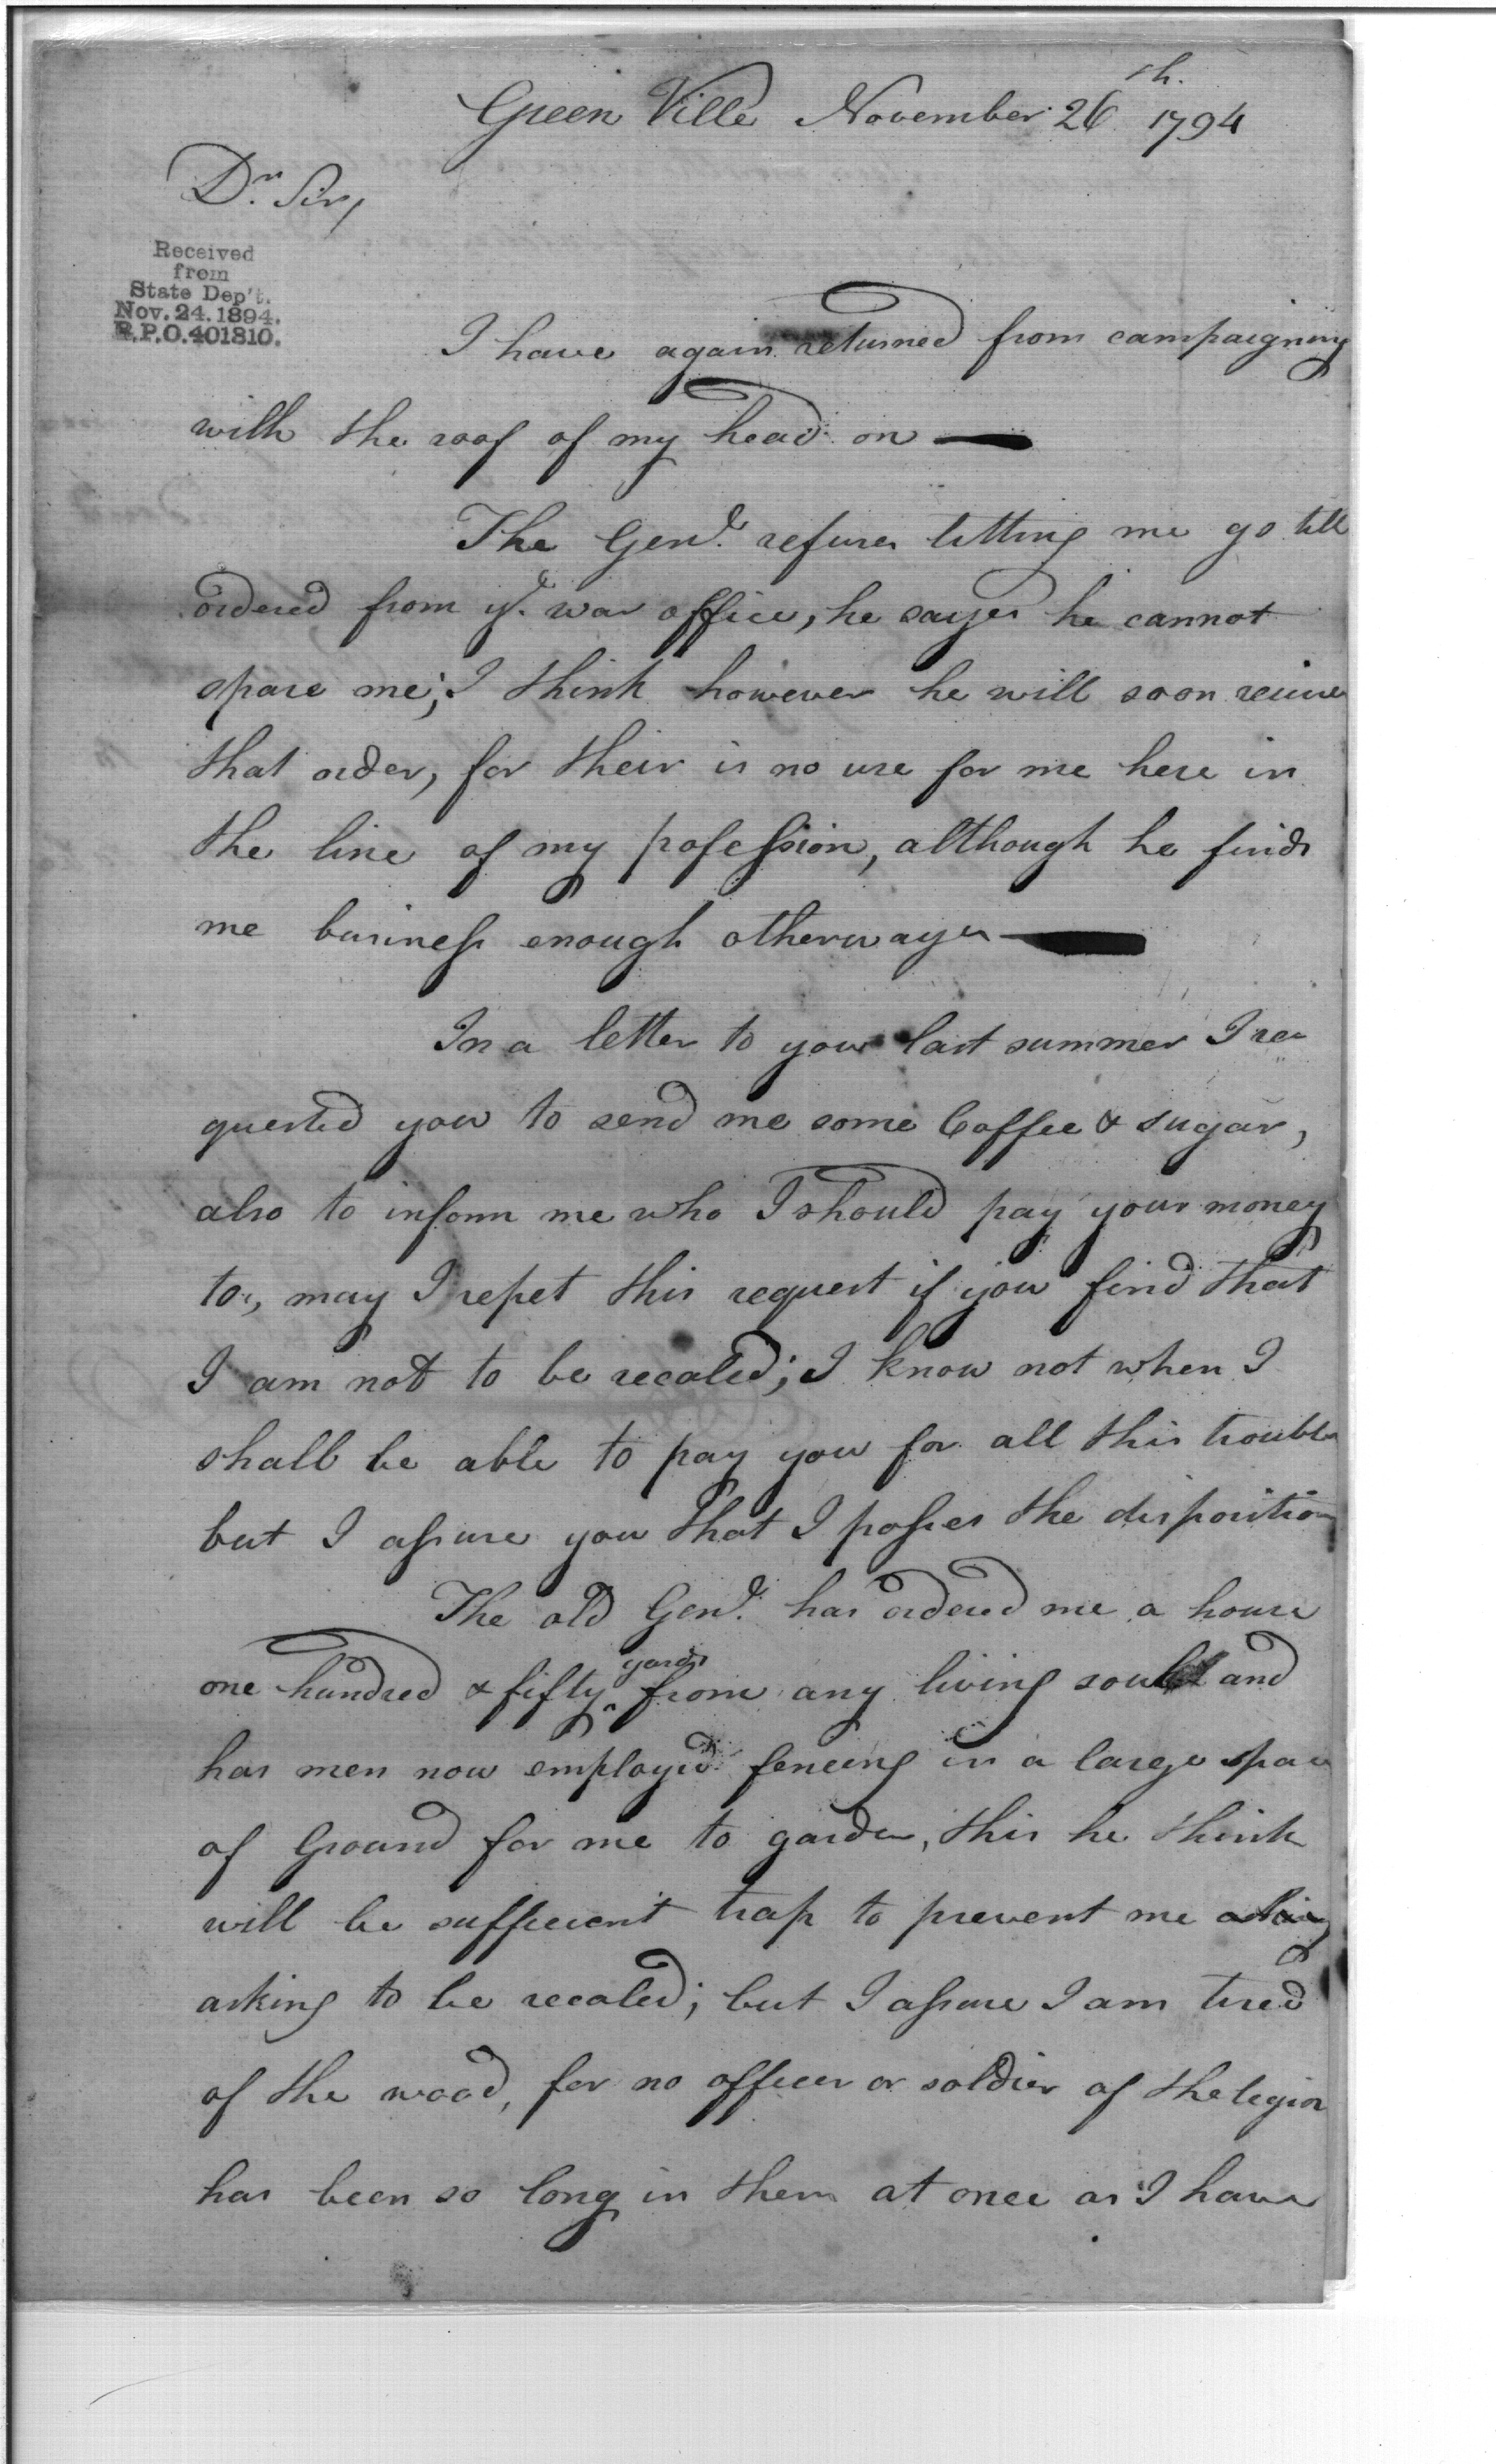 Green Ville November 26th. 1794
Dr. Sir,
Received
from
State Dep't.
Nov. 24. 1894.
R.P.O. 401810.
I have again returned from campaigning
with the roof of my head on —
The Genl. refuses letting me go till
ordered from ye. war office, he sayes he cannot
spare me; I think however he will soon
that order, for their is no use for me here in
the line of my pofession, although he finds
me business enough otherwayes —
In a letter to you last summer I re
quested you to send me some Coffee & sugar,
also to inform me who I should pay your money
to, may I repet this request if you find that
I am not to be recaled; I know not when I
shall be able to pay you for all this trouble
but I assure you that I posses the disposition
The old Genl. has ordered me a house
one hundred & fifty yards from any living soul and
has men now employed fenceing in a large space
of Ground for me to garden, this he think
will be sufficient trap to prevent me
asking to be recaled; but I assure I am tired
of the wood, for no officer or soldier of the legion
has been so long in them at once as I have